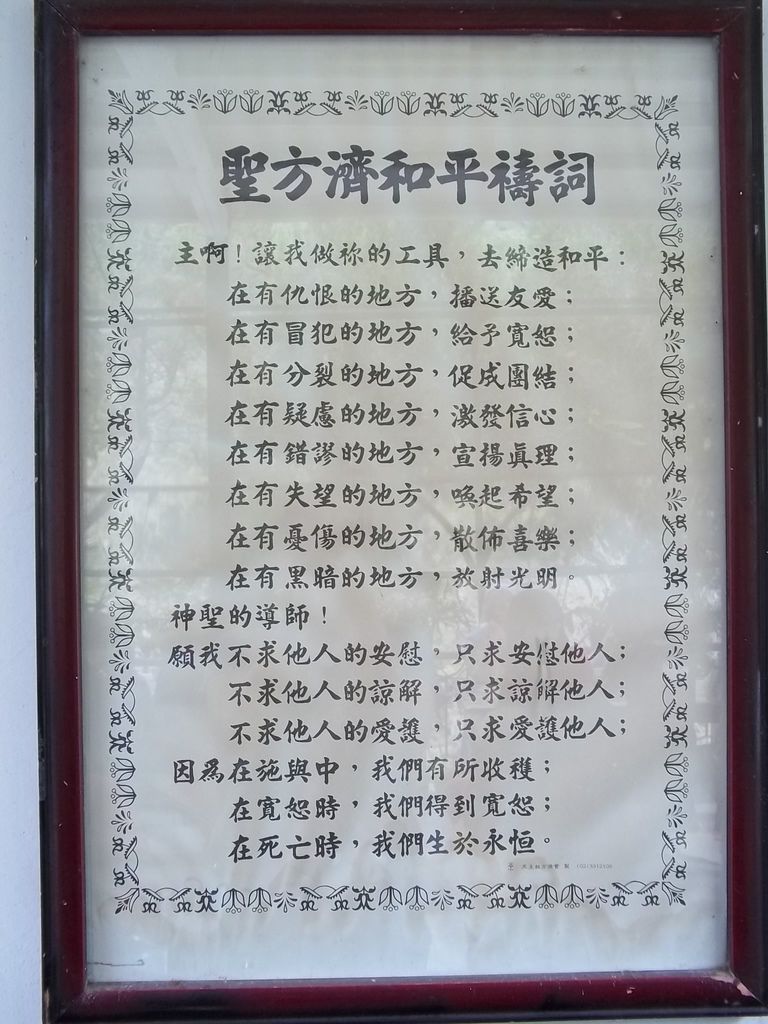 聖方濟和平禱詞
主啊！讓我做祢的工具，去締造和平：
在有仇恨的地方，播送友愛；
在有冒犯的地方，給予寬恕；
在有分裂的地方，促成團結；
在有疑慮的地方，激發信心；
在有錯謬的地方，宣揚眞理；
在有失望的地方，喚起希望；
在有憂傷的地方，散佈喜樂；
在有黑暗的地方，放射光明。
神聖的導師！
願我不求他人的安慰，只求安慰他人；
不求他人的諒解，只求諒解他人；
不求他人的愛護，只求愛護他人；
因爲在施與中，我們有所收穫；
在寬恕時，我們得到寬恕；
在死亡時，我們生於永恒。